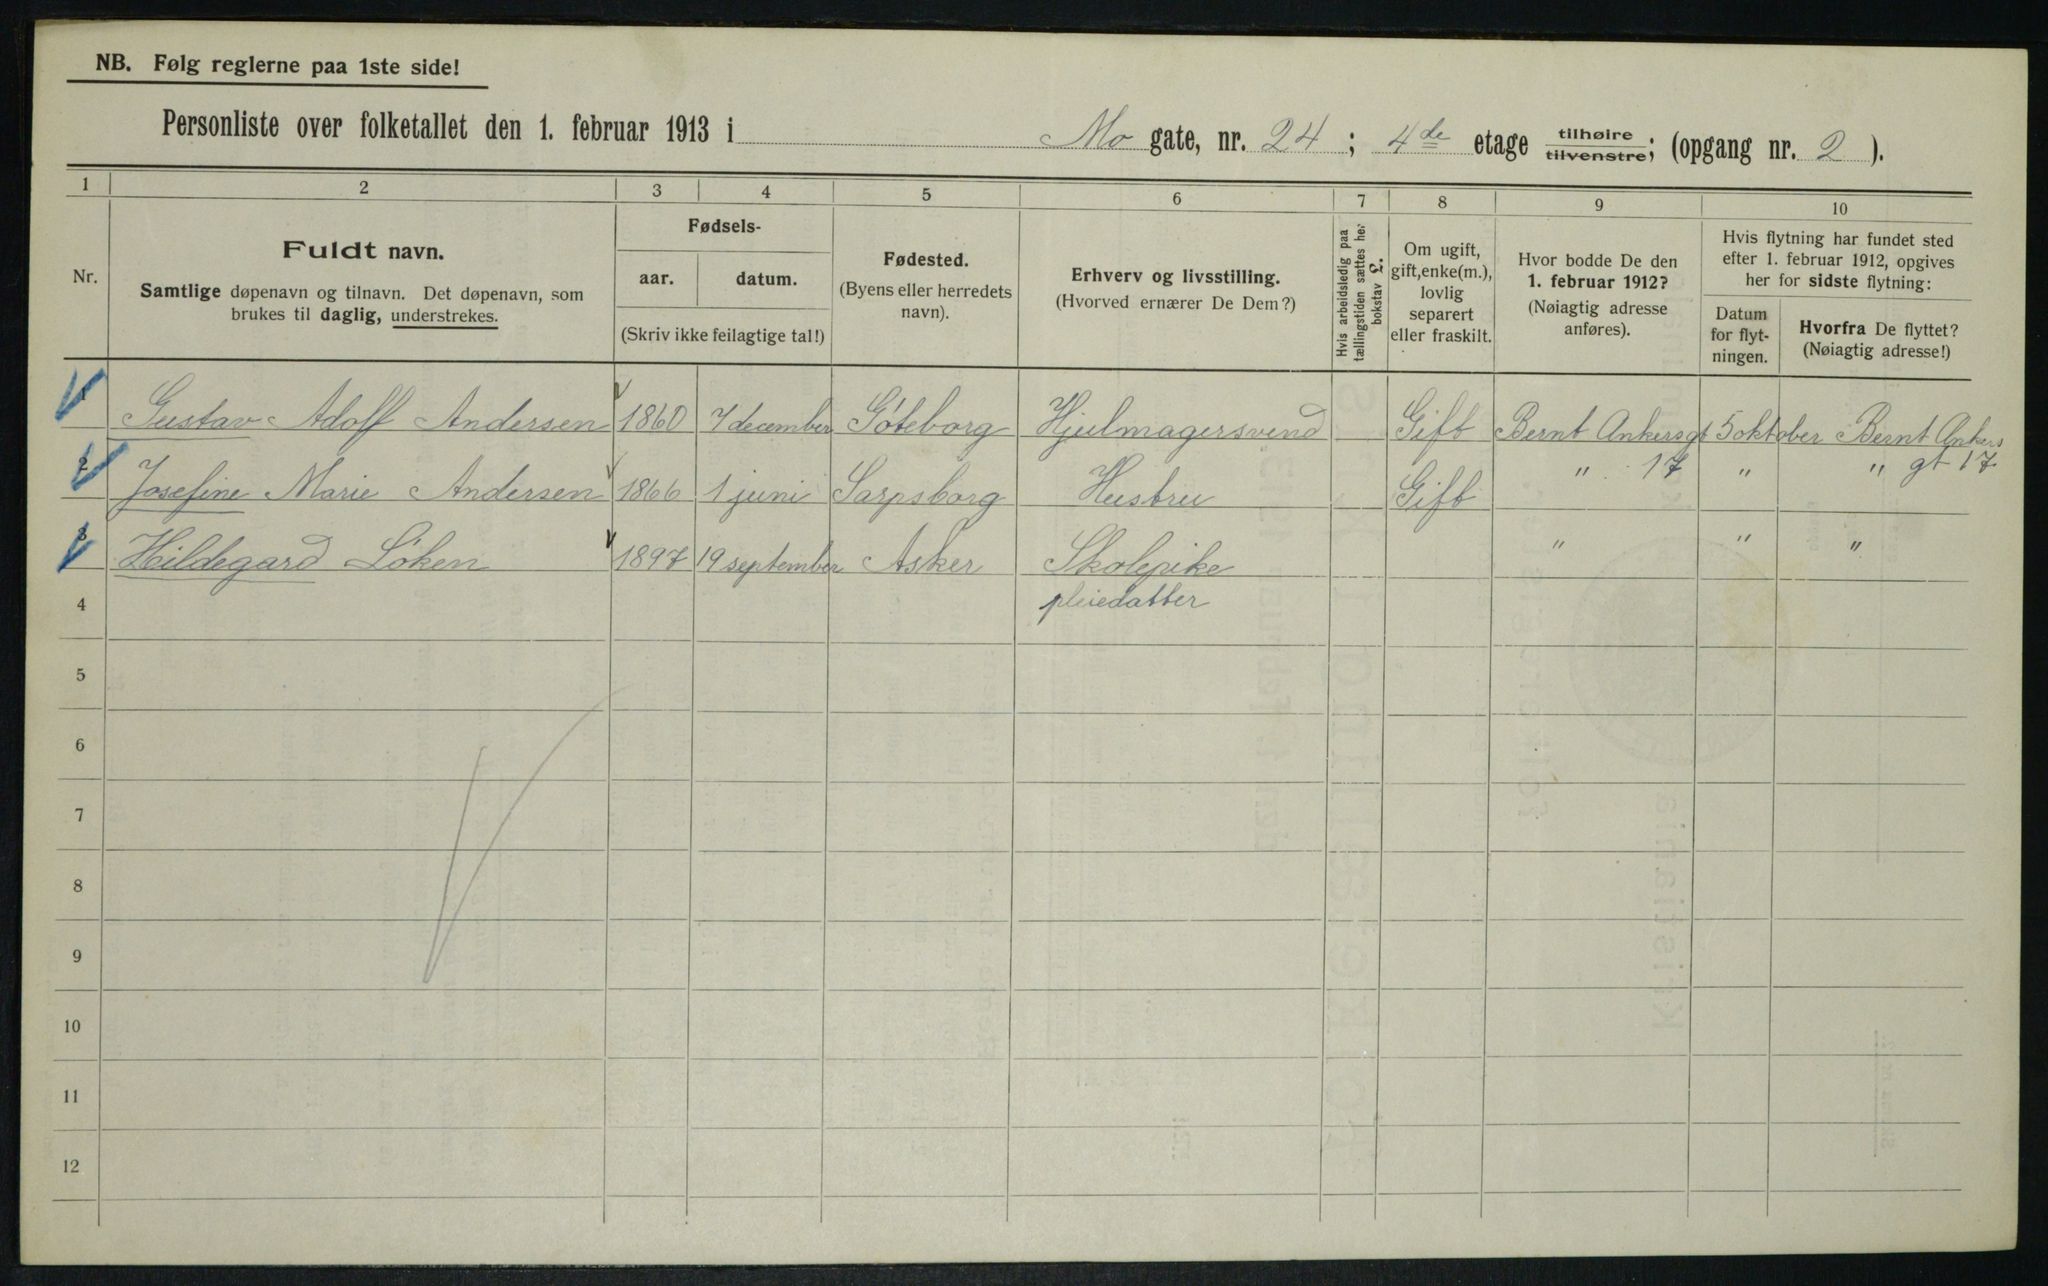 NB. Følg reglerne paa 1ste side!
Personliste over folketallet den 1. februar 1913 i Mo gate, nr. 24 ; 4de etage tilhøire tilvenstre; (opgang nr. 2 ).
1 2 3 4 5 6 7 8 9 10
Nr.
Fuldt navn.
Samtlige døpenavn og tilnavn. Det døpenavn, som
brukes til daglig, understrekes.
Fødsels-
aar. datum.
(Skriv ikke feilagtige tal!)
Fødested.
(Byens eller herredets
navn).
Erhverv og livsstilling.
(Hvorved ernærer De Dem?)
Hvis arbeidsledig paa
tællingstiden sættes her
bokstav L.
Om ugift,
gift, enke(m.),
lovlig
separert
eller fraskilt.
Hvor bodde De den
1. februar 1912?
(Nøiagtig adresse
anføres).
Hvis flytning har fundet sted
efter 1. februar 1912, opgives
her for sidste flytning:
Datum
for flyt-
ningen.
Hvorfra De flyttet?
(Nøiagtig adresse!)
1 Gustav Adolf Andersen 1860 7 december Göteborg Hjulmagersvend Gift Bernt Ankersgt 5 oktober Bernt Ankers
2 Josefine Marie Andersen 1866 1 juni Sarpsborg Husbru Gift " 17 " " gt 17
3 Hildegard Löken 1897 19 september Asker Skolepike " " "
4 pleiedatter
5
6
7
8
9
10
11
12